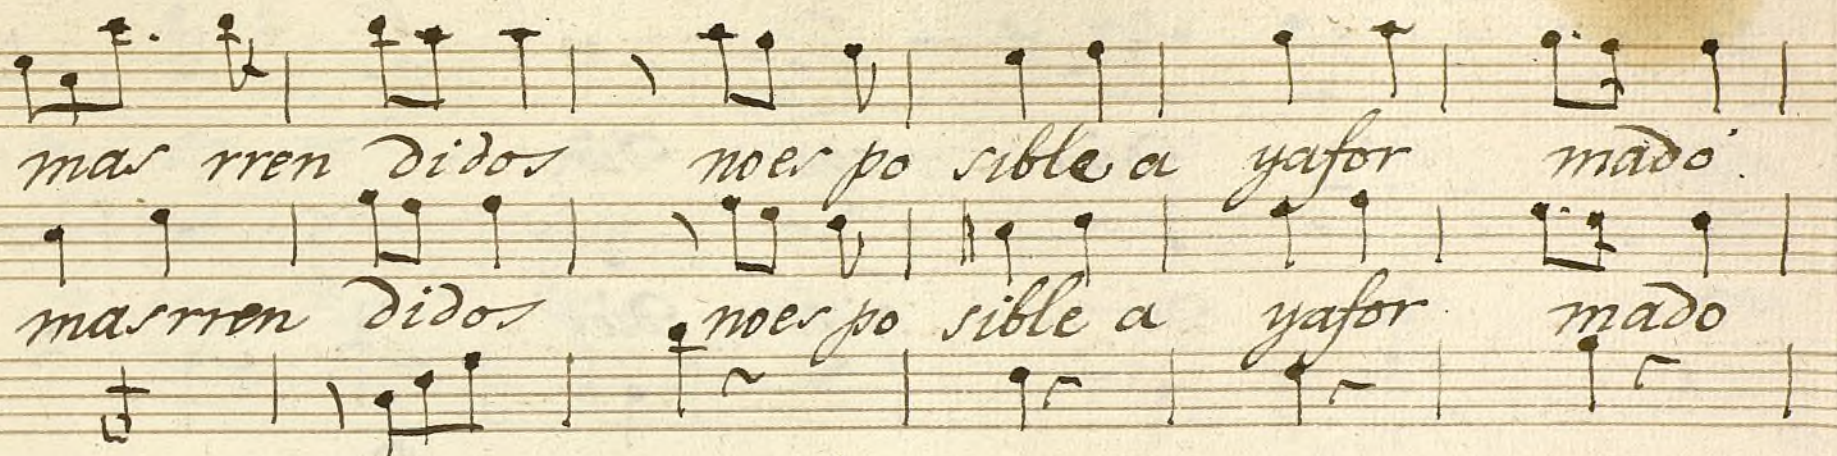 mas rren didos noes po sible a yafor mado
masrren didos noes po sible a yafor mado